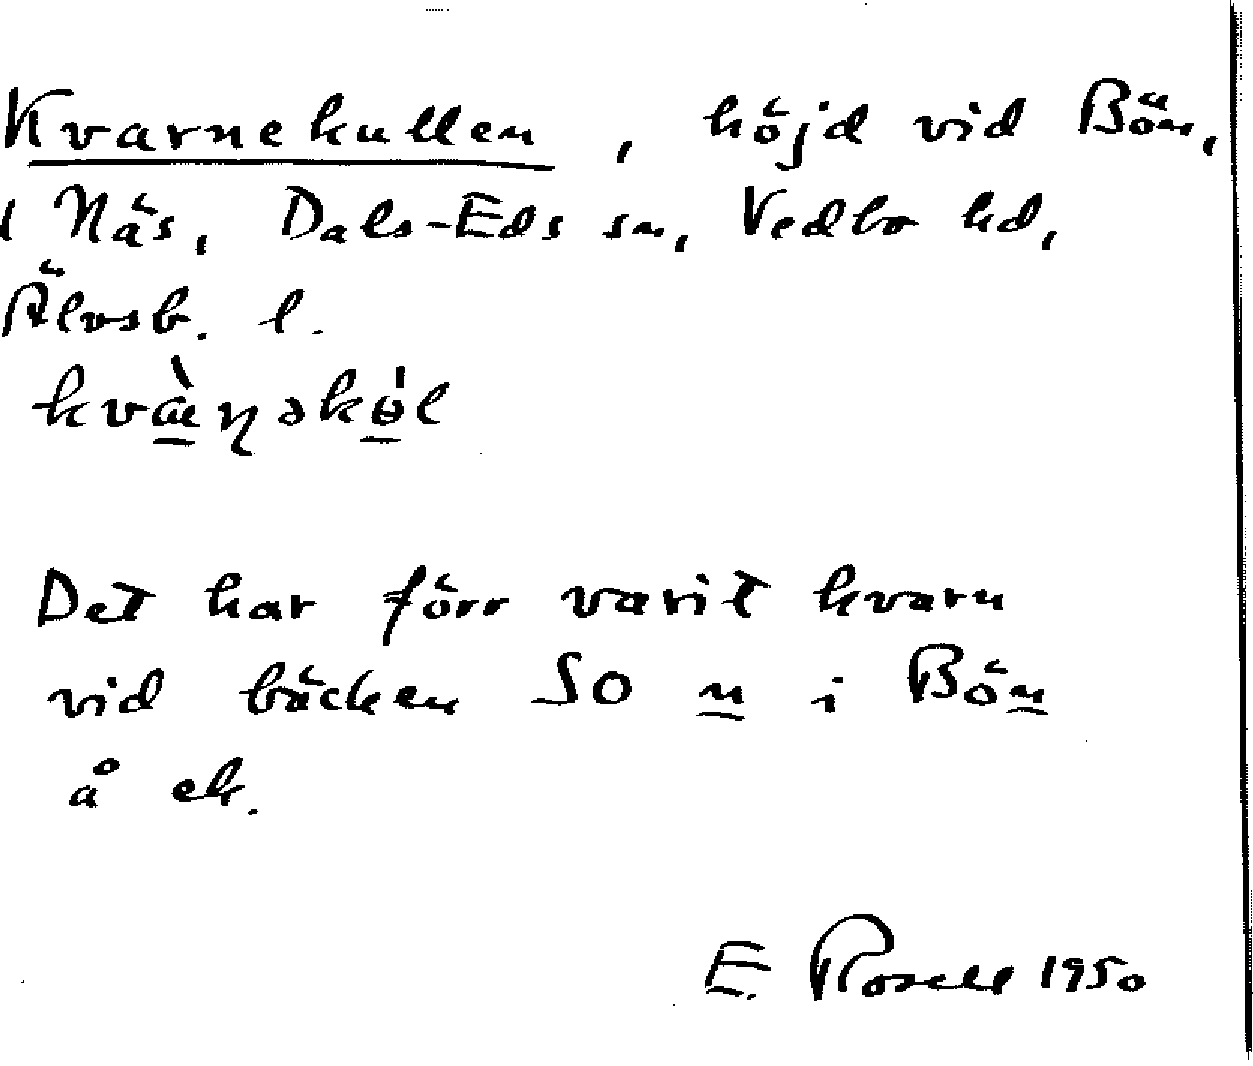 Kvarnekullen, höjd vid Bön,
i Näs, Dals-Eds sn, Vedbo hd,
Älvsb. l.
kvæ̀ṇəkɵ́l
Det har förr varit kvarn
vid bäcken SO n i Bön
å ek.
E. Rosell 1950